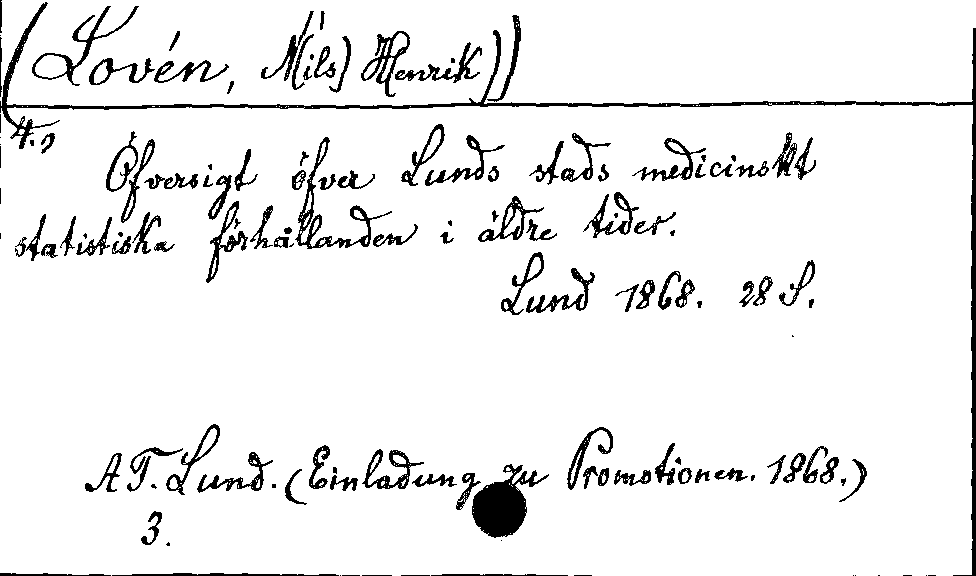 (Lovén, N(ils) Henrik))
4.,
Öfversigt öfver Lunds stads medicinskt
statistiska förhållanden i äldre tider.
Lund 1868. 28 S.
AT. Lund. (Einladung zu Promotionen. 1868.)
3.